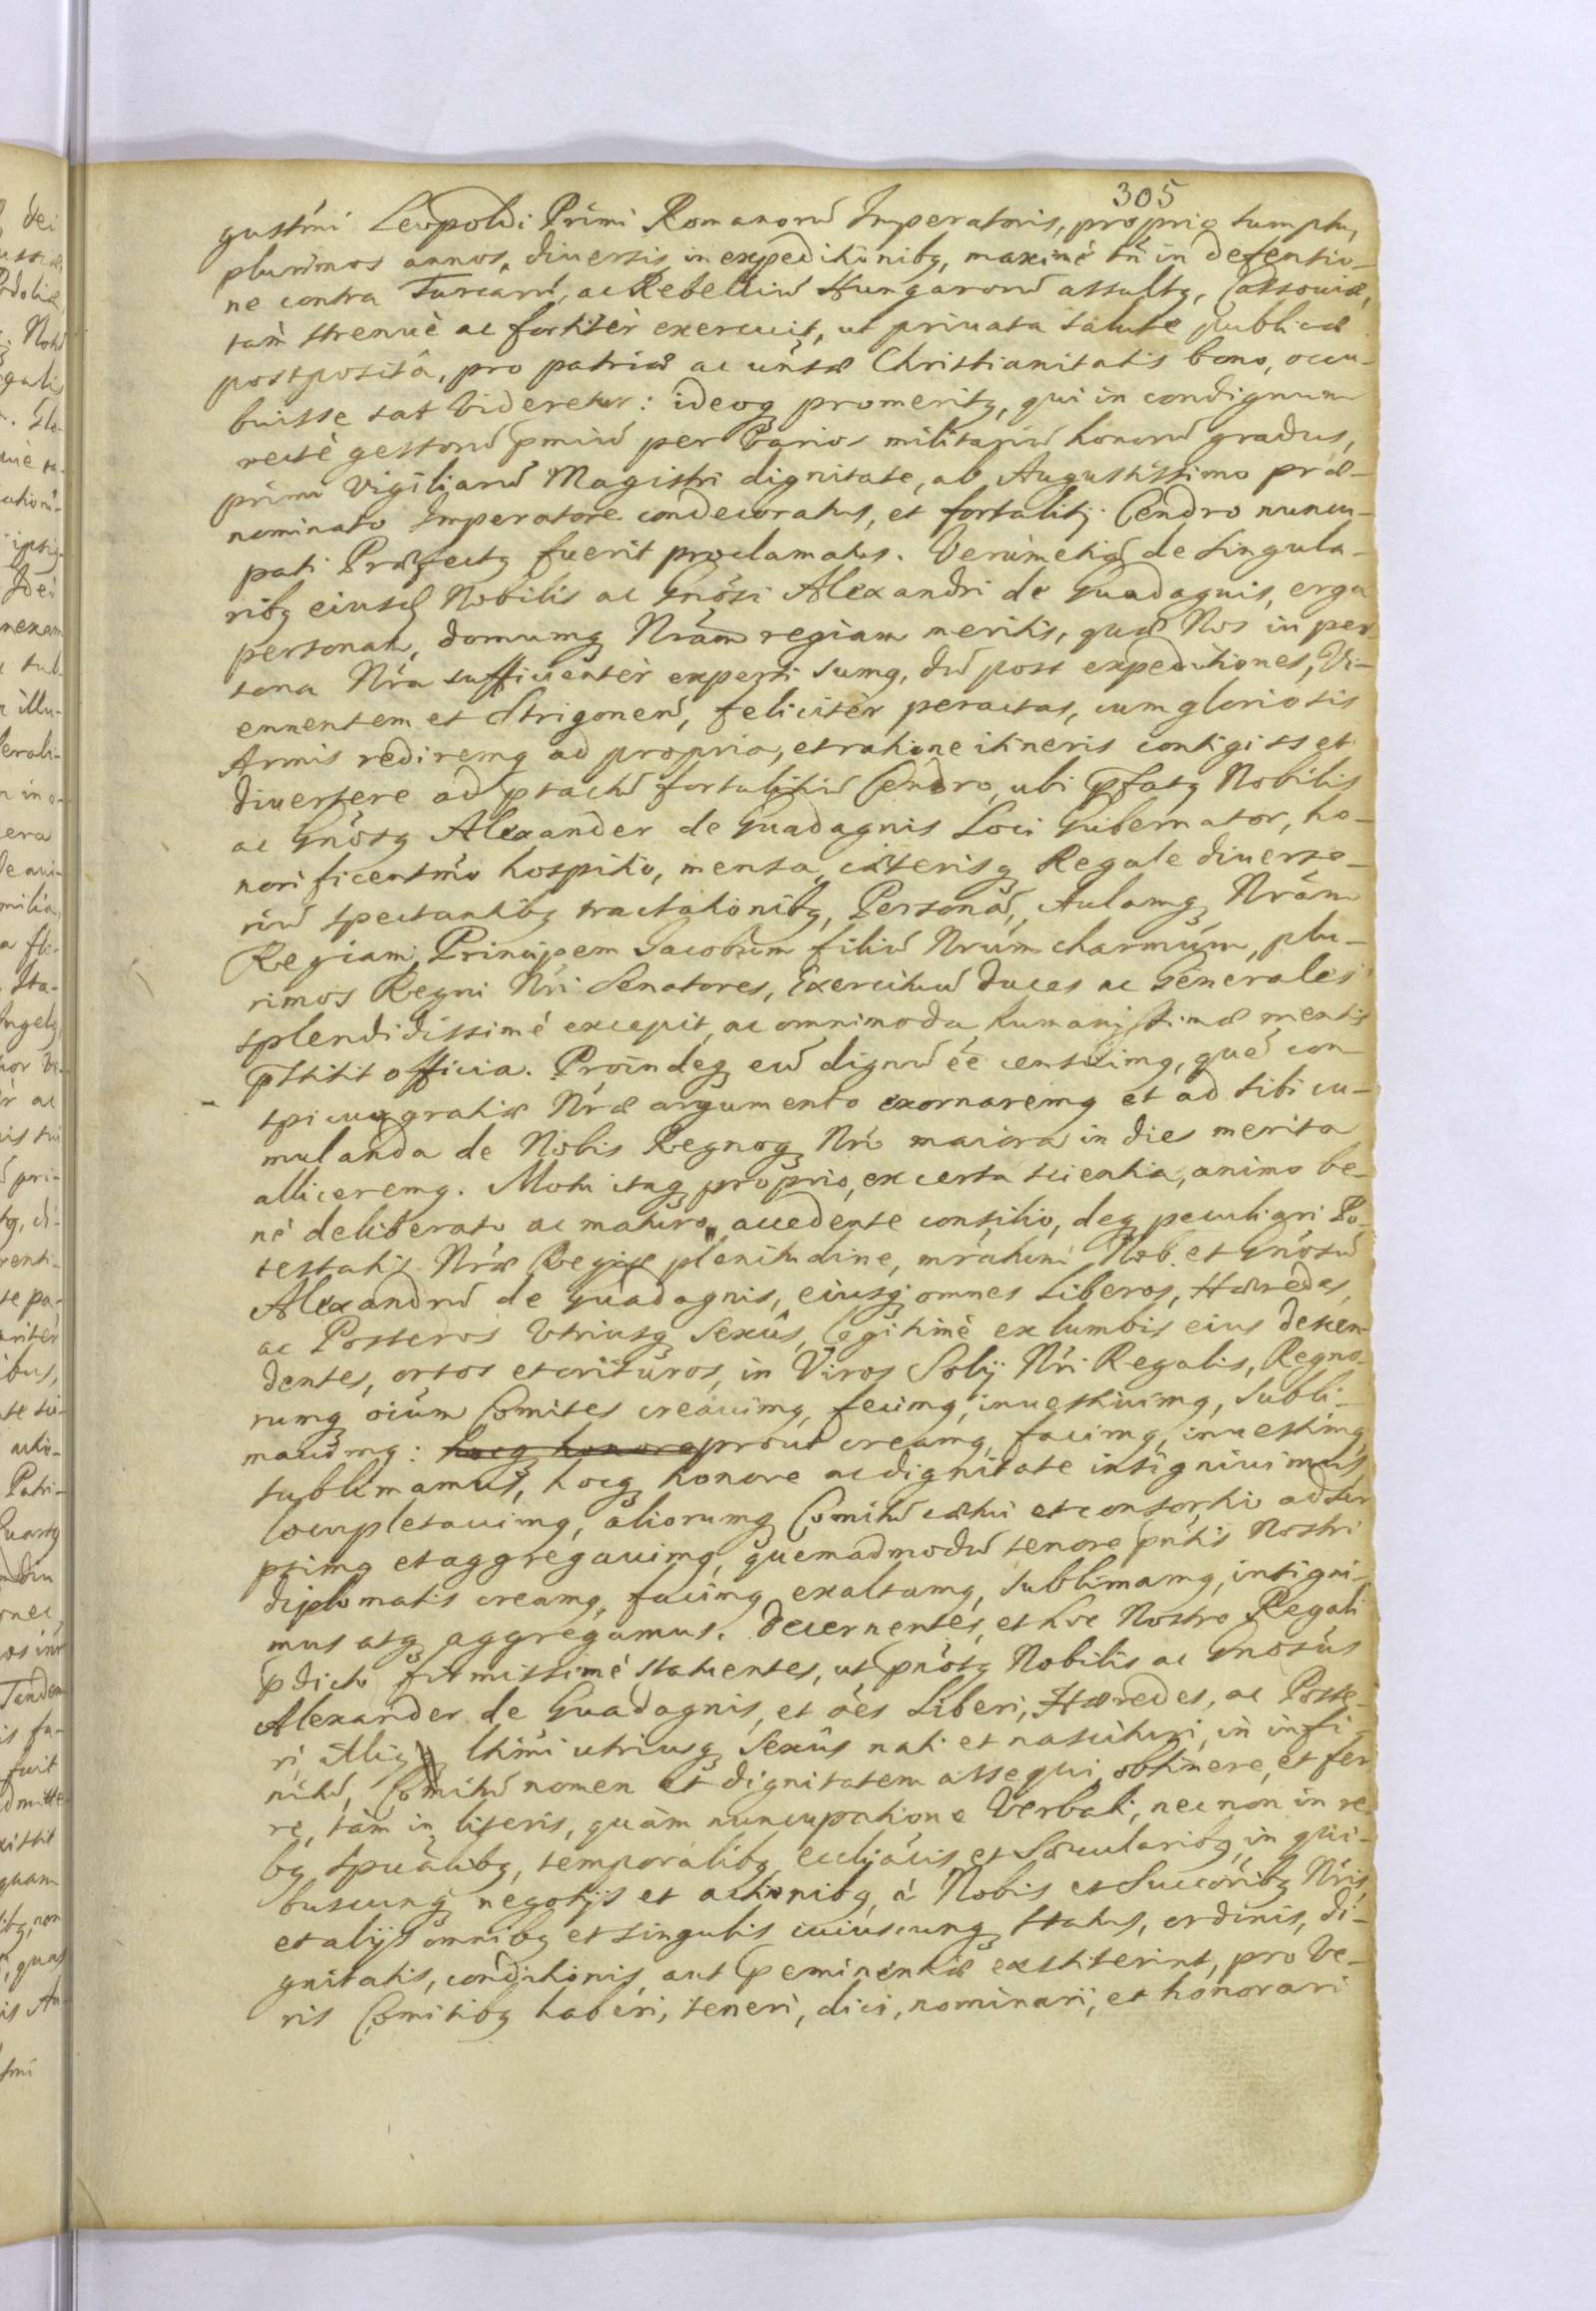 305
gustmi Leopoldi Primi Romanorũ Imperatoris, proprio sumptu,
plurimos annos, diuersis in expeditionibq, maximè tñ in defensio-
ne contra Turcarũ, ac Rebelliũ Hungarorũ assultq, Cassouiæ,
tàm strenuè ac fortitèr exercuit, ut priuata salute publicæ
postpositâ, pro patriæ ac uñsæ Christianitatis bono, occu-
buisse sat videretur: ideoq promeritq, qui in condignum
rectè gestorũ pmiũ per varios militariũ honorũ gradus,
primi Vigiliarũ Magistri dignitate, ab Augustissimo præ-
nominato Imperatore condecoratus, et fortalitij Cendro nuncu-
pati Præfectq fuerit proclamatus. Verùmetiã de singula-
ribq eiusd Nobilis ac Gnosi Alexandri de Guadagnis, erga
personam, domumq Nrãm regiam meritis, quæ Nos in per
sona Nra sufficientèr experti sumq, dũ post expeditiones, Vi-
ennensem et Strigonen, felicitèr peractas, cum gloriosis
Armis rediremq ad propria, et ratione itineris contigisset
diuertere ad ptactũ fortalitiũ Cendro, ubi pfatq Nobilis
ac Gnosq Alexander de Guadagnis Loci Gubernator, ho-
norificentmo hospitio, mensa, cæterisq Regale diuerso-
riũ spectantibq tractationibq, Personã, Aulamq Nràm
Regiam, Principem Jacobum filiũ Nrum charmum, plu-
rimos Regni Nri Senatores, Exercituũ Duces ac Generales
splendidissimè excepit, ac omnimoda humanissimæ mentis
pstitit officia. Proindeq eũ dignũ ee censuimq, quẽ con-
spicuo gratiæ Nræ argumento exornaremq et ad sibi cu-
mulanda de Nobis Regnoq Nro maiora in dies merita
alliceremq. Motu itaq proprio, ex certa scientia, animo be-
nè deliberato ac maturo, accedente consilio, deq peculiari Po-
testatis Nræ Regiæ plenitudine, mratum Nob. et Gnosũ
Alexandrũ de Guadagnis, eiusq omnes Liberos, Hæredes,
ac Posteros Vtriusq Sexûs, Legitimè ex lumbis eius descen
dentes, ortos et orituros, in Viros Solij Nri Regalis, Regno-
rumq oium Comites creauimq, fecimq, inuestiuimq, Subli-
mauimq: hocq honore prout creamq, facimq, inuestimq,
sublimamus, hocq honore ac dignitate insigniuimus,
locupletauimq, aliorumq Comitũ cætui et consortio adscri
psimq et aggregauimq, quemadmodũ tenore pntis Nostri
diplomatis creamq, facimq, exaltamq, sublimamq, insigni-
mus atq aggregamus. Decernentes, et hoc Nostro Regali
edicto firmissimè statuentes, ut pnosq Nobilis ac Gnosus
Alexander de Guadagnis, et oes Liberi, Hæredes, ac Poste-
ri, lthimi utriusq Sexûs nati et nascituri, in infi-
nitũ, Comitũ nomen et dignitatem assequi, obtinere, et fer
re, tàm in literis, quàm nuncupatione Verbali, nec non in re
bq spualibq, temporalibq, ecclijacis et Sæcularibq, in qui-
buscunq negotijs et actionibq, à Nobis et Succoribq Nris,
et alijs omnibq et singulis cuiuscunq status, ordinis, di-
gnitatis, conditionis, aut peminentiæ exstiterint, pro Ve-
ris Comitibq haberi, teneri, dici, nominari, et honorari